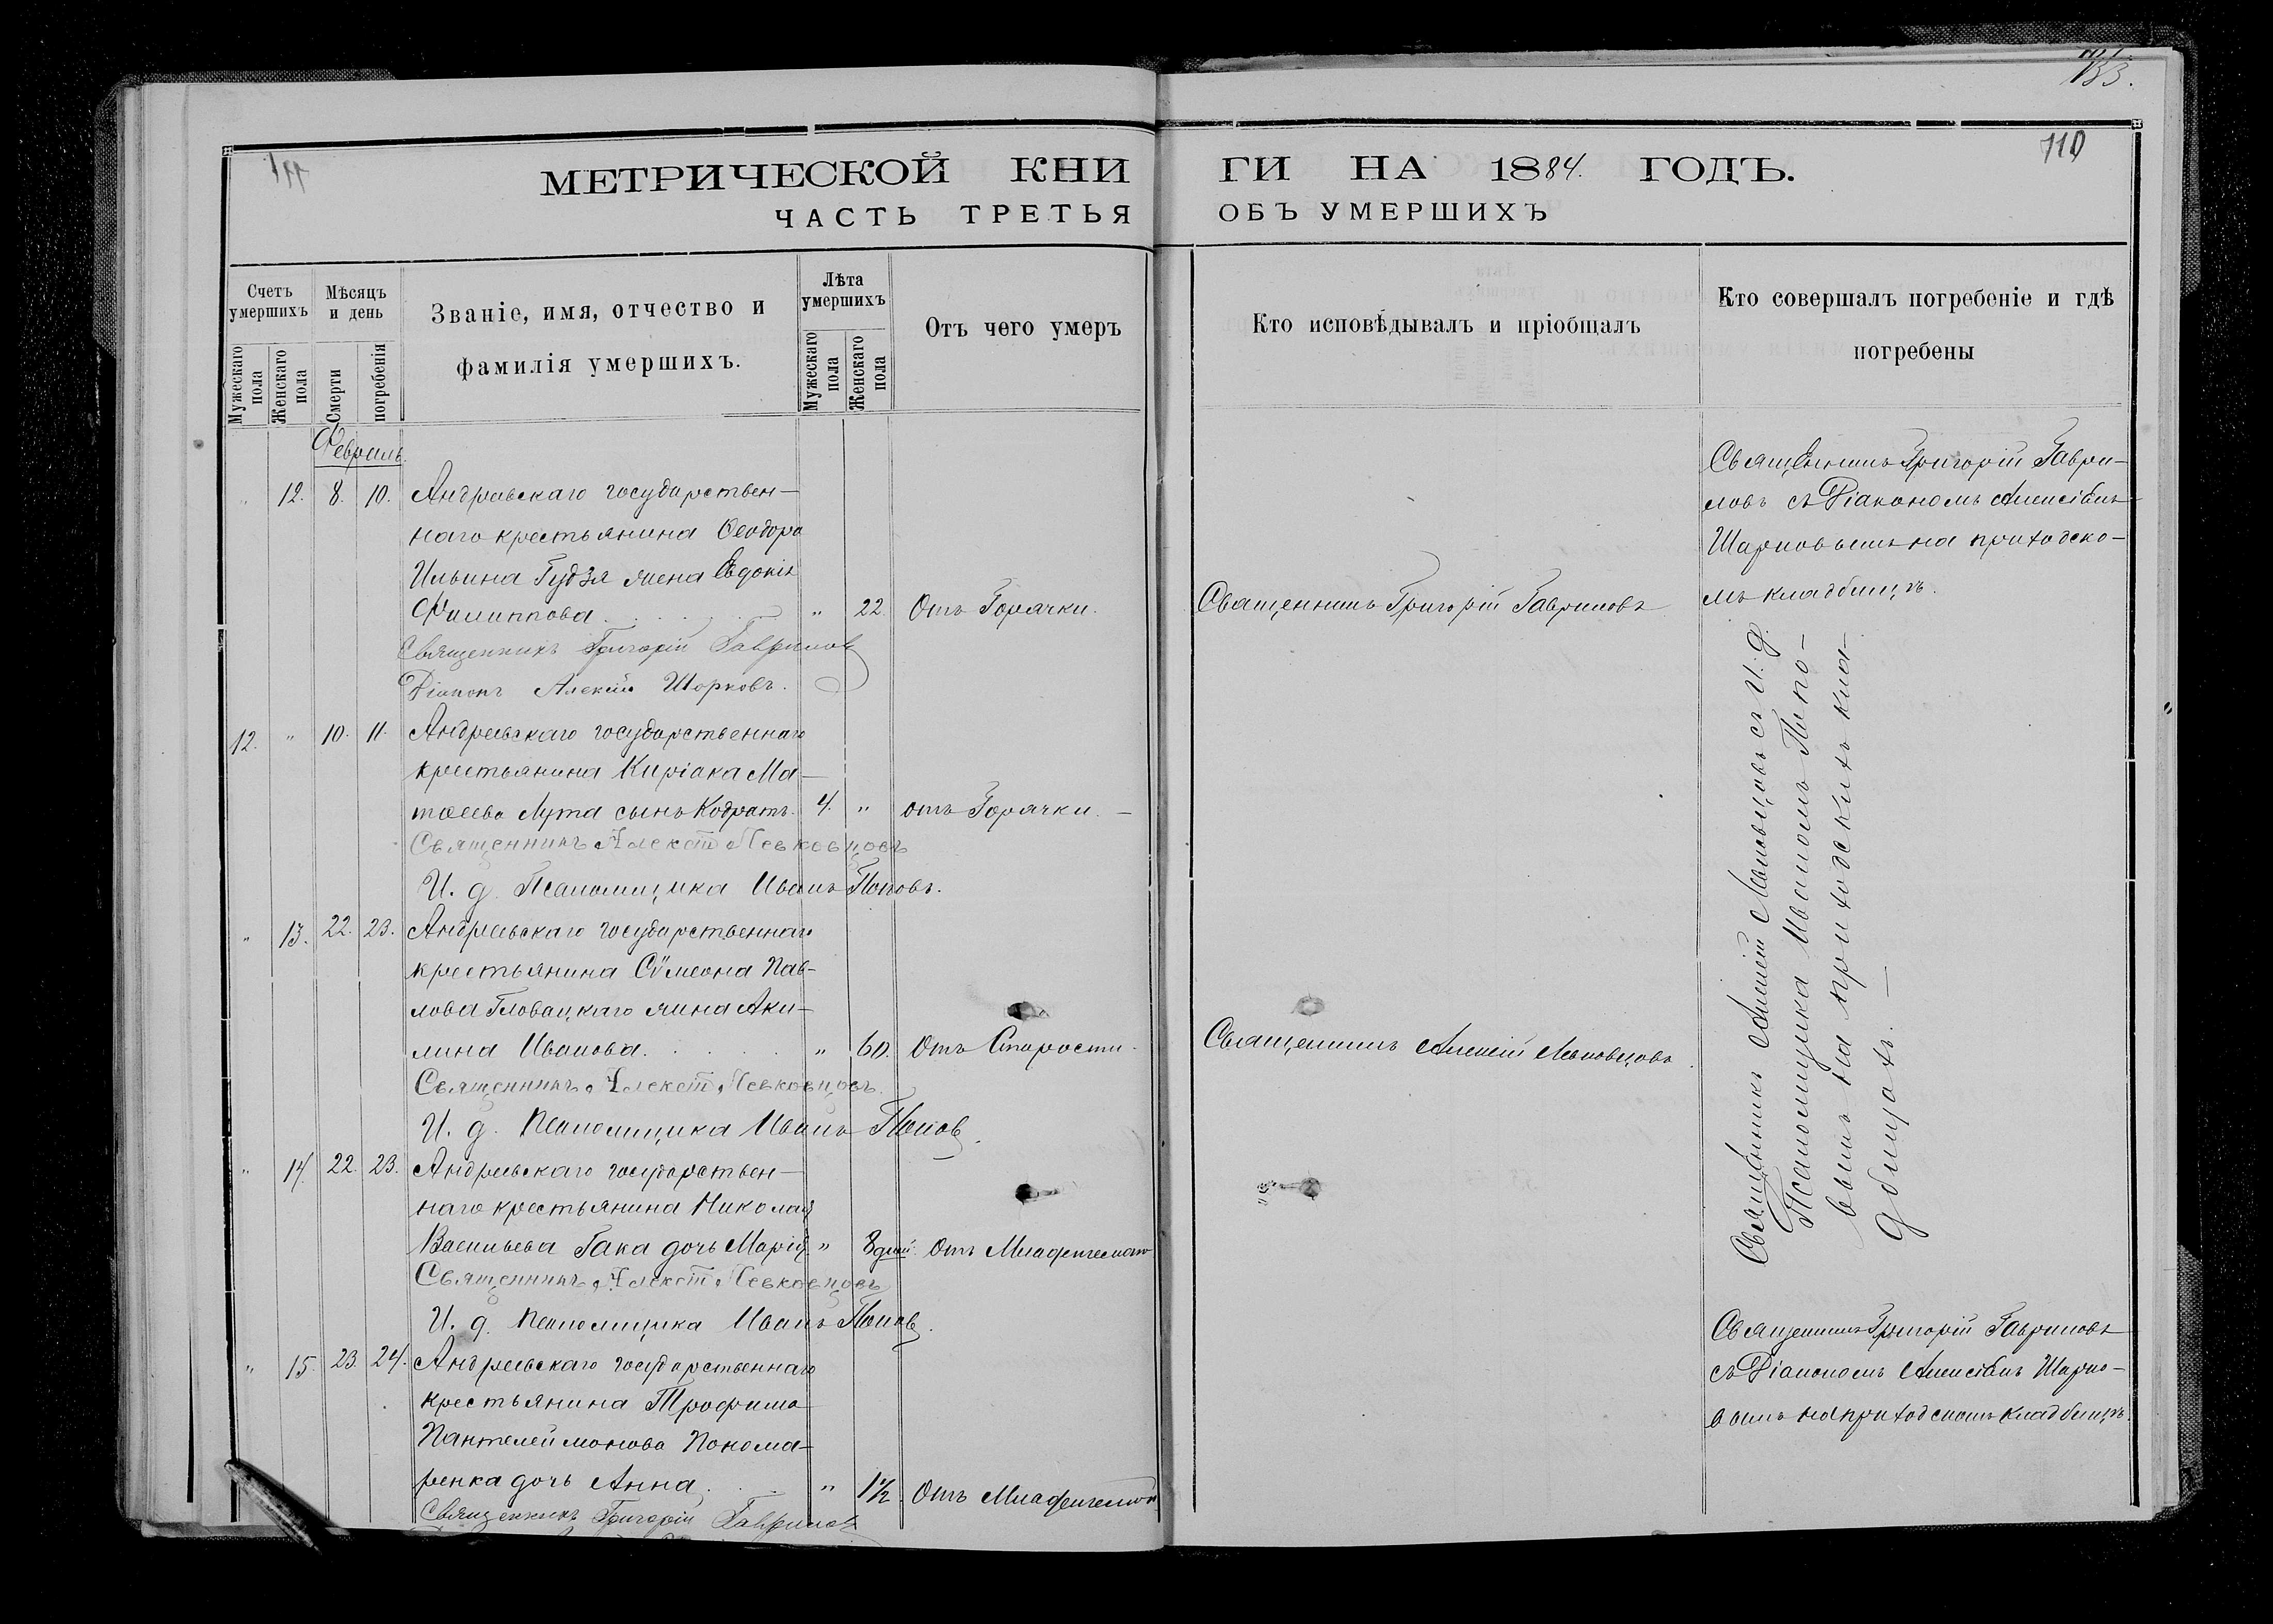 133.
110
МЕТРИЧЕСКОЙ КНИГИ НА 1884. ГОДЪ.
ЧАСТЬ ТРЕТЬЯ ОБЪ УМЕРШИХЪ
Счетъ умершихъ
Мужескаго пола
Женскаго пола
Мѣсяцъ и день
Смерти
погребенія
Званіе, имя, отчество и
фамилія умершихъ.
Лѣта умершихъ
Мужескаго пола
Женскаго пола
Отъ чего умеръ
Кто исповѣдывалъ и пріобщалъ
Кто совершалъ погребеніе и гдѣ
погребены
Февраль.
„ 12. 8. 10. Андреевскаго государствен-
наго крестьянина Ѳеодора
Ильина Гудзя жена Евдокія
Филиппова „ 22. Отъ Горячки.
Священникъ Григорій Гавриловъ
Священникъ Григорій Гаври-
ловъ съ Діакономъ Алексіемъ
Шарковымъ на приходско-
мъ кладбищѣ.
Священникъ Григорій Гавриловъ
Діаконъ Алексій Шорковъ.
12. „ 10. 11. Андреевскаго государственнаго
крестьянина Киріака Ма-
тѳеева Лута сынъ Кодратъ. 4. „ отъ Горячки. —
Священникъ Алексій Левковцовъ
И. д. Псаломщика Иванъ Поповъ.
„ 13. 22. 23. Андреевскаго государственнаго
крестьянина Сѵмеона Пав-
лова Гловацкаго жена Аки-
лина Иванова. „ 60. Отъ Старости.
Священникъ Алексій Левковцовъ.
Священникъ Алексій Левковцовъ.
И. д. Псаломщика Иванъ Поповъ.
„ 14. 22. 23. Андреевскаго государствен-
наго крестьянина Николая
Васильева Гака дочь Марія „ 8 дней. Отъ Младенческаго
Священникъ Алексій Левковцовъ
И. д. Псаломщика Иванъ Поповъ.
Священникъ Алексій Левковцовъ съ И. д.
Псаломщика Иваномъ Попо-
вымъ на приходскихъ кла-
дбищахъ. —
„ 15. 23. 24. Андреевскаго государственнаго
крестьянина Трофима
Пантелеймонова Понома-
ренка дочь Анна. „ 1½. Отъ Младенческой
Священникъ Григорій Гавриловъ
съ Діакономъ Алексіемъ Шарко-
вымъ на приходскомъ кладбищѣ.
Священникъ Григорій Гавриловъ